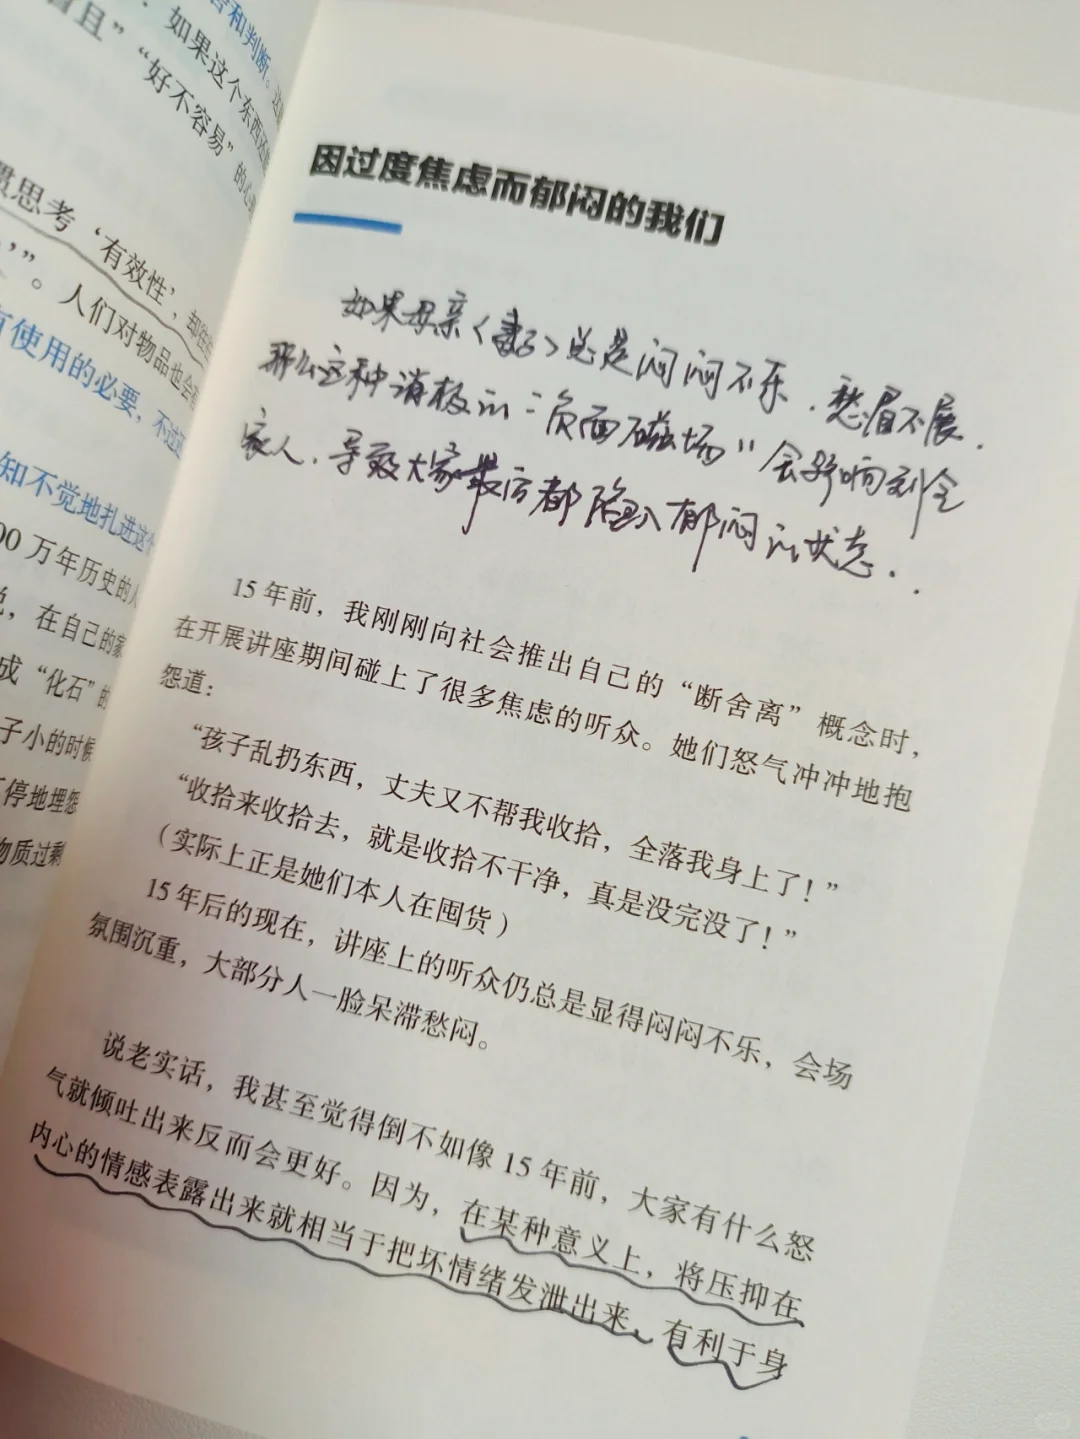 和判断。
且”“
如果这个东西还
“好不容易”的心
惯思考‘有效性’，却往
’”。人们对物品也会
使用的必要，不过
知不觉地扎进这
00 万年历史的人
，在自己的家
成“化石”的
子小的时候
停地埋怨
物质过剩
因过度焦虑而郁闷的我们
如果母亲〈妻子〉总是闷闷不乐、愁眉不展，
那么这种消极的“负面磁场”会影响到全
家人，导致大家最后都陷入郁闷的状态．
15 年前，我刚刚向社会推出自己的“断舍离”概念时，
在开展讲座期间碰上了很多焦虑的听众。她们怒气冲冲地抱
怨道：
“孩子乱扔东西，丈夫又不帮我收拾，全落我身上了！”
“收拾来收拾去，就是收拾不干净，真是没完没了！”
（实际上正是她们本人在囤货）
15 年后的现在，讲座上的听众仍总是显得闷闷不乐，会场
氛围沉重，大部分人一脸呆滞愁闷。
说老实话，我甚至觉得倒不如像 15 年前，大家有什么怒
气就倾吐出来反而会更好。因为，在某种意义上，将压抑在
内心的情感表露出来就相当于把坏情绪发泄出来，有利于身